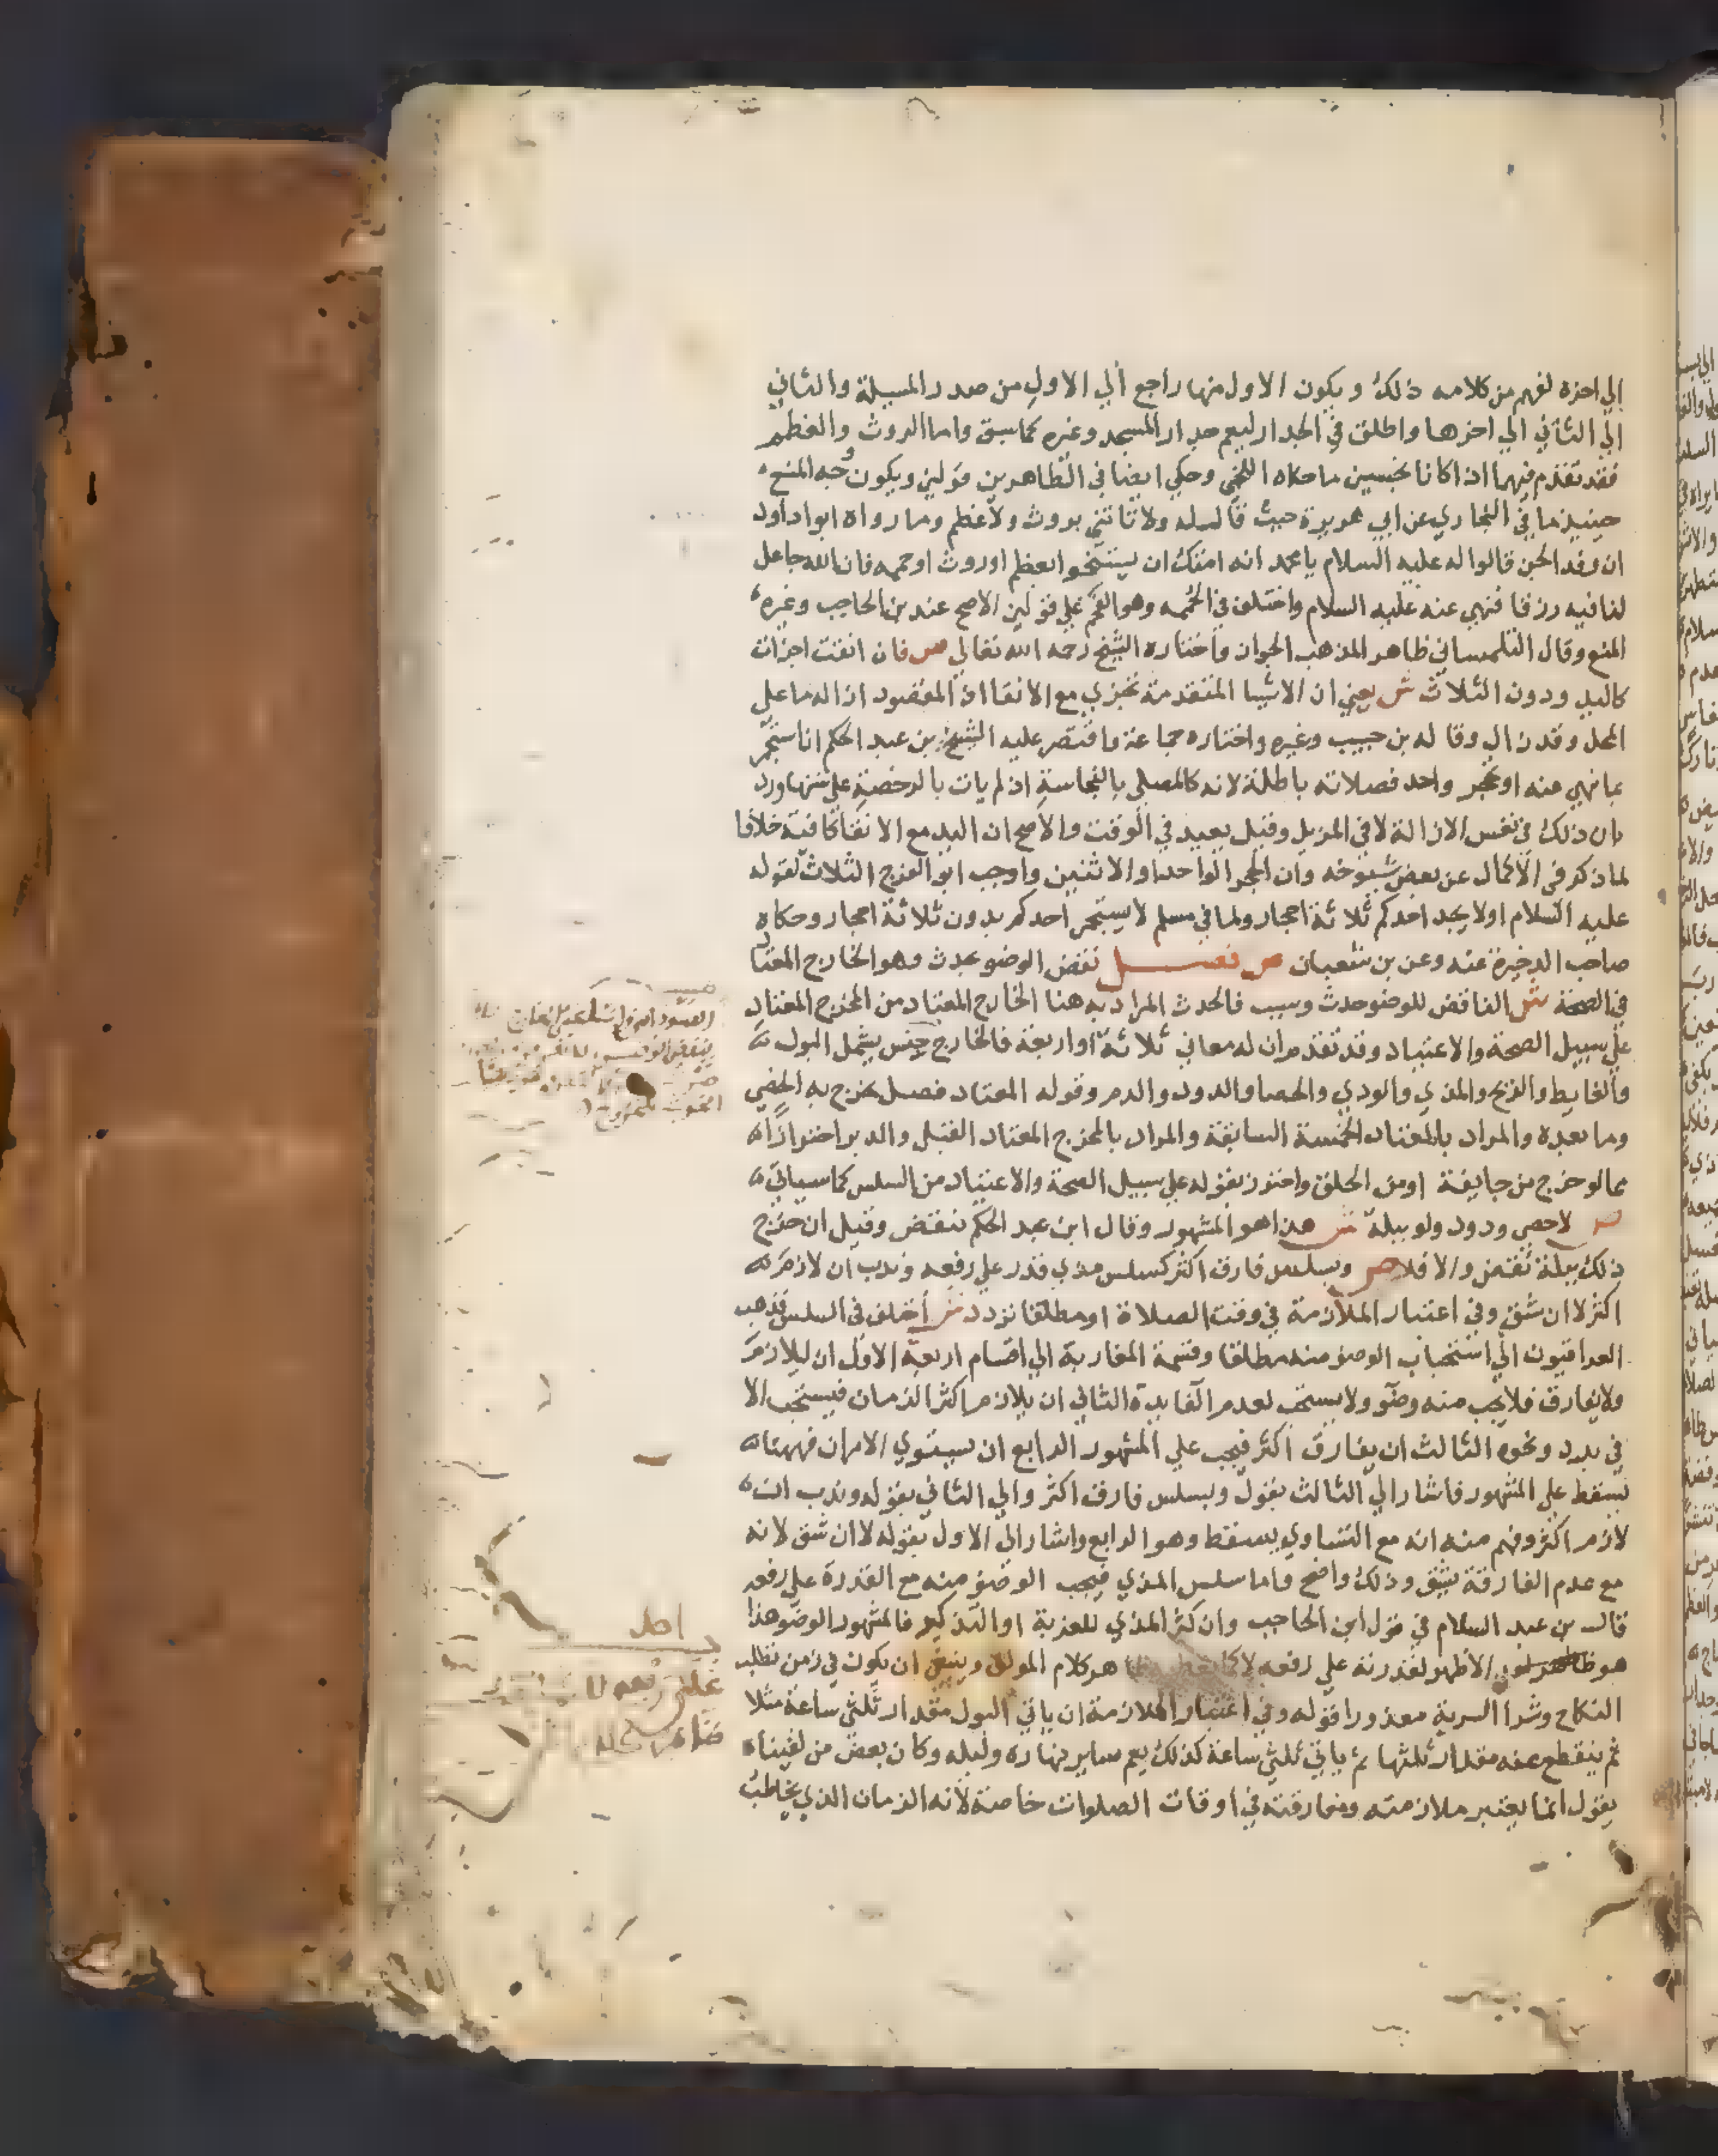 الي اخره لفهم من كلامه ذلك ويكون الاول منها راجع الي الاول من صدر المسيلة والثاني
الي الثاني الي اخرها واطلق في الجدار ليعم جدار المسجد وغيره كما سبق واما الروث والعظم
فقد تقدم فيهما اذا كانا نجسين ما حكاه اللخمي وحكي ايضا في الطاهرين قولين ويكون وجه المنع
حينيذ ما في البخاري عن ابي هريرة حيث قال له ولا تاتني بروث ولا عظم وما رواه ابوا داود
ان وفد الجن قالوا له عليه السلام يا محمد انه امتك ان يستنجوا بعظم او روث او حممه فان الله جاعل
لنا فيه رزقا فنهي عنه عليه السلام واختلف في الحممه وهو الفحم علي قولين الاصح عند بن الحاجب وغيره
المنع وقال التلمساني ظاهر المذهب الجواز واختاره الشيخ رحمه الله تعالي ص فان انقت اجزات
كاليد ودون الثلاث ش يعني ان الاشيا المتقدمة تجزي مع الانقا اذ المقصود ازاله ما علي
المحل وقد زال وقاله بن حبيب وغيره واختاره جماعة واقتصر عليه الشيخ بن عبد الحكم ان استجمر
بما نهي عنه او بحجر واحد فصلاته باطلة لانه كالمصلي بالنجاسة اذ لم يات بالرخصة علي سنتها ورد
بان ذلك في نفس الازالة لا في المزيل وقيل يعيد في الوقت والاصح ان اليد مع الانقا كافية خلافا
لما ذكر في الاكمال عن بعض شيوخه وان الحجر الواحد او الاثنين واوجب ابو الفرج الثلاث لقوله
عليه السلام اولا يجد احدكم ثلاثة احجار ولما في مسلم لا يستجمر احدكم بدون ثلاثة احجار وحكاه
صاحب الذخيرة عنه وعن بن شعبان ص فصل نقض الوضو بحدث وهو الخارج المعتاد
في الصحة ش الناقض للوضو حدث وسبب فالحدث المراد به هنا الخارج المعتاد من المخرج المعتاد
علي سبيل الصحة والاعتياد وقد تقدم ان له معاني ثلاثة او اربعة فالخارج جنس يشمل البول
والغايط والريح والمذي والودي والحصا والدود والدم وقوله المعتاد فصل يخرج به الحصي
وما بعده والمراد بالمعتاد الخمسة السابقة والمراد بالمخرج المعتاد القبل والدبر احترازا
مما لو خرج من جايفة او من الحلق واحترز بقوله علي سبيل الصحة والاعتياد من السلس كما سياتي
ص لا حصي ودود ولو ببلة ش هذا هو المشهور وقال ابن عبد الحكم ينقض وقيل ان خرج
ذلك ببلة نقض والا فلا ص وبسلس فارق اكثر كسلس مذي قدر علي رفعه وندب ان لازم
اكثر لا ان شق وفي اعتبار الملازمة في وقت الصلاة او مطلقا تردد ش اختلف في السلس فذهب
العراقيون الي استحباب الوضو منه مطلقا وقسمة المغاربة الي اقسام اربعة الاول ان يلازم
ولا يفارق فلا يجب منه وضو ولا يستحب لعدم الفايدة الثاني ان يلازم اكثر الزمان فيستحب الا
في برد ونحوه الثالث ان يفارق اكثر فيجب علي المشهور الرابع ان يستوي الامران فههنا
يسقط علي المشهور فاشار الي الثالث بقول وبسلس فارق اكثر والي الثاني بقوله وندب ان
لازم اكثر وفهم منه انه مع التساوي يسقط وهو الرابع واشار الي الاول بقوله لا ان شق لانه
مع عدم الفارقة يشق وذلك واضح واما سلس المذي فيجب الوضو منه مع القدرة علي رفعه
قال بن عبد السلام في قول ابن الحاجب وان كثر المذي للعزبة او التذكر فالمشهور الوضو هذا
هو الاظهر لقدرته علي رفعه ظاهر كلام المولف وينبغي ان يكون في زمن تطلب
النكاح وشرا السرية معذورا قوله وفي اعتبار الملازمة ان ياتي البول مقدار ثلثي ساعة مثلا
ثم ينقطع عنه مقدار ثلثها ثم ياتي ثلثي ساعة كذلك يعم ساير نهاره وليله وكان بعض من لقيناه
يقول انما يعتبر ملازمته ومفارقته في اوقات الصلوات خاصة لانه الزمان الذي يخاطب